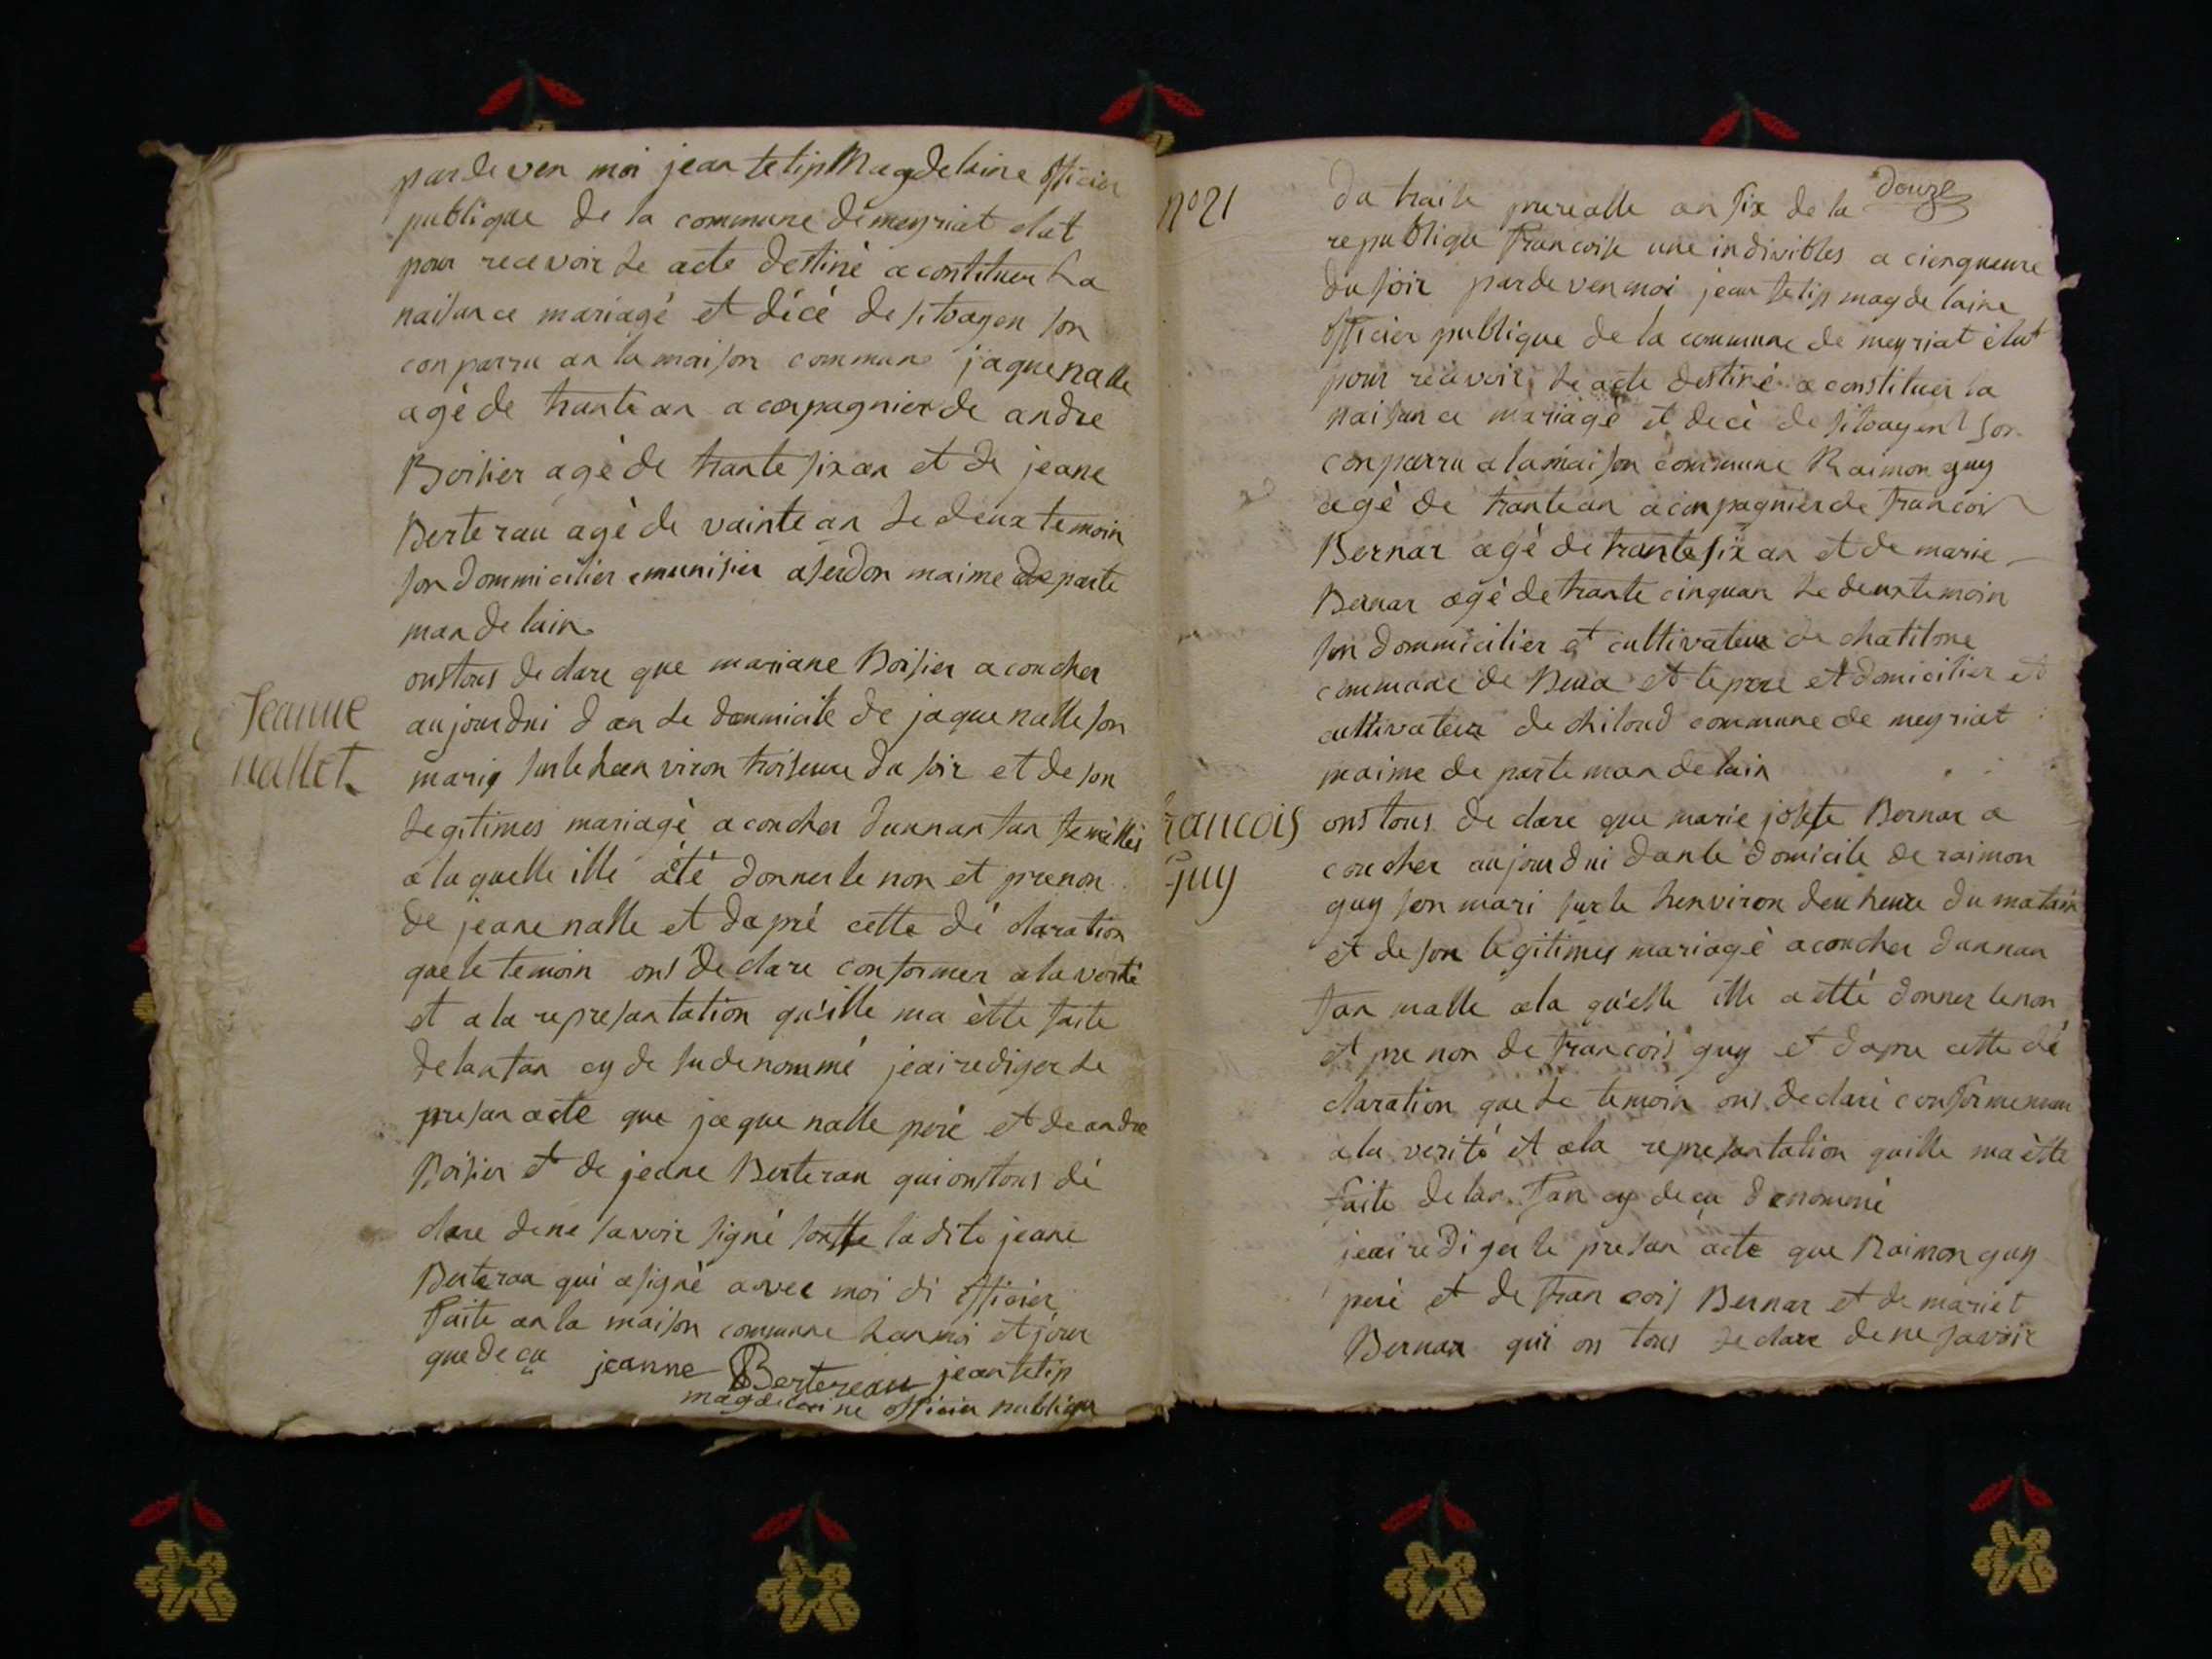 pardeven moi jean felip Magdelaine officier
publique de la commune de meyriat elut
pour recevoir le acte destiné a contituer La
naisance mariagé et décé de sitoayen son
conparru an la maison commune jaque nalle
agé de trante an aconpagnier de andre
Boisier agé de trante six an et de jeane
Berterau agé de vainte an le deux temoin
son dommicilier munisier a serdon maime departe
man de lain
onstous declare que mariane Boisier acoucher
Jeanne
nallet
aujourdui dan le dommicile de jaque nalle son
mariy sur le heen viron troiseure du soir et de son
legitimes mariagé acoucher dunnanfan femelles
a laquelle ille a été donner le non et prenon
de jeane nalle et dapré cette dé claration
que le temoin ons declare conformer a la verité
et a la represantation qu'ille ma ètte faite
de lanfan cy de sudenommé jeai rediger le
presan acte que jaque nalle peré et de andre
Boisier et de jeane Berterau qui onstous dé
clare dene savoir signé sonffe la dite jeane
Berterau qui a signé avec moi di officier
faite an la maison commune lan moi et jour
que de cu jeanne Bertereau jean felip
magdelaine officier publique
douze
n° 21
Du traite prerialle an six de la
republique francoise une indivibles a cienqueure
du soir pardeven moi jean felip magdelaine
officier publique de la commune de meyriat élut
pour recevoir le acte destiné a constituer la
naisance mariagé et decé de sitoayen son
conparru a la maison commune Raimon guy
agé de trante an aconpagnier de francois
Bernar agé de trante six an et de marie
Bernar agé de trante cinquan le deux temoin
son dommicilier et cultivateur de chatilone
commune de et le pere et domicilier et
cultivateur de chiloud commune de meyriat
maime de parte man de lain
francois
guy
ons tous declare que marie jossfe Bernar a
coucher aujourdui dan le domicile de raimon
guy son mari sur le henviron deu heure du matain
et de son legitimes mariagé acoucher dunnan
fan malle a la qu'elle ille a etté donner le non
et pre non de francois guy et dapre cette dé
claration que le temoin ons declaré conformeman
a la verité et a la represantation quille ma ètte
faite de lan fan cy de cu denommé
jeai rediger le presan acte que Raimon guy
peré et de fran cois Bernar et de mariet
Bernar qui on tous declare dene savoir